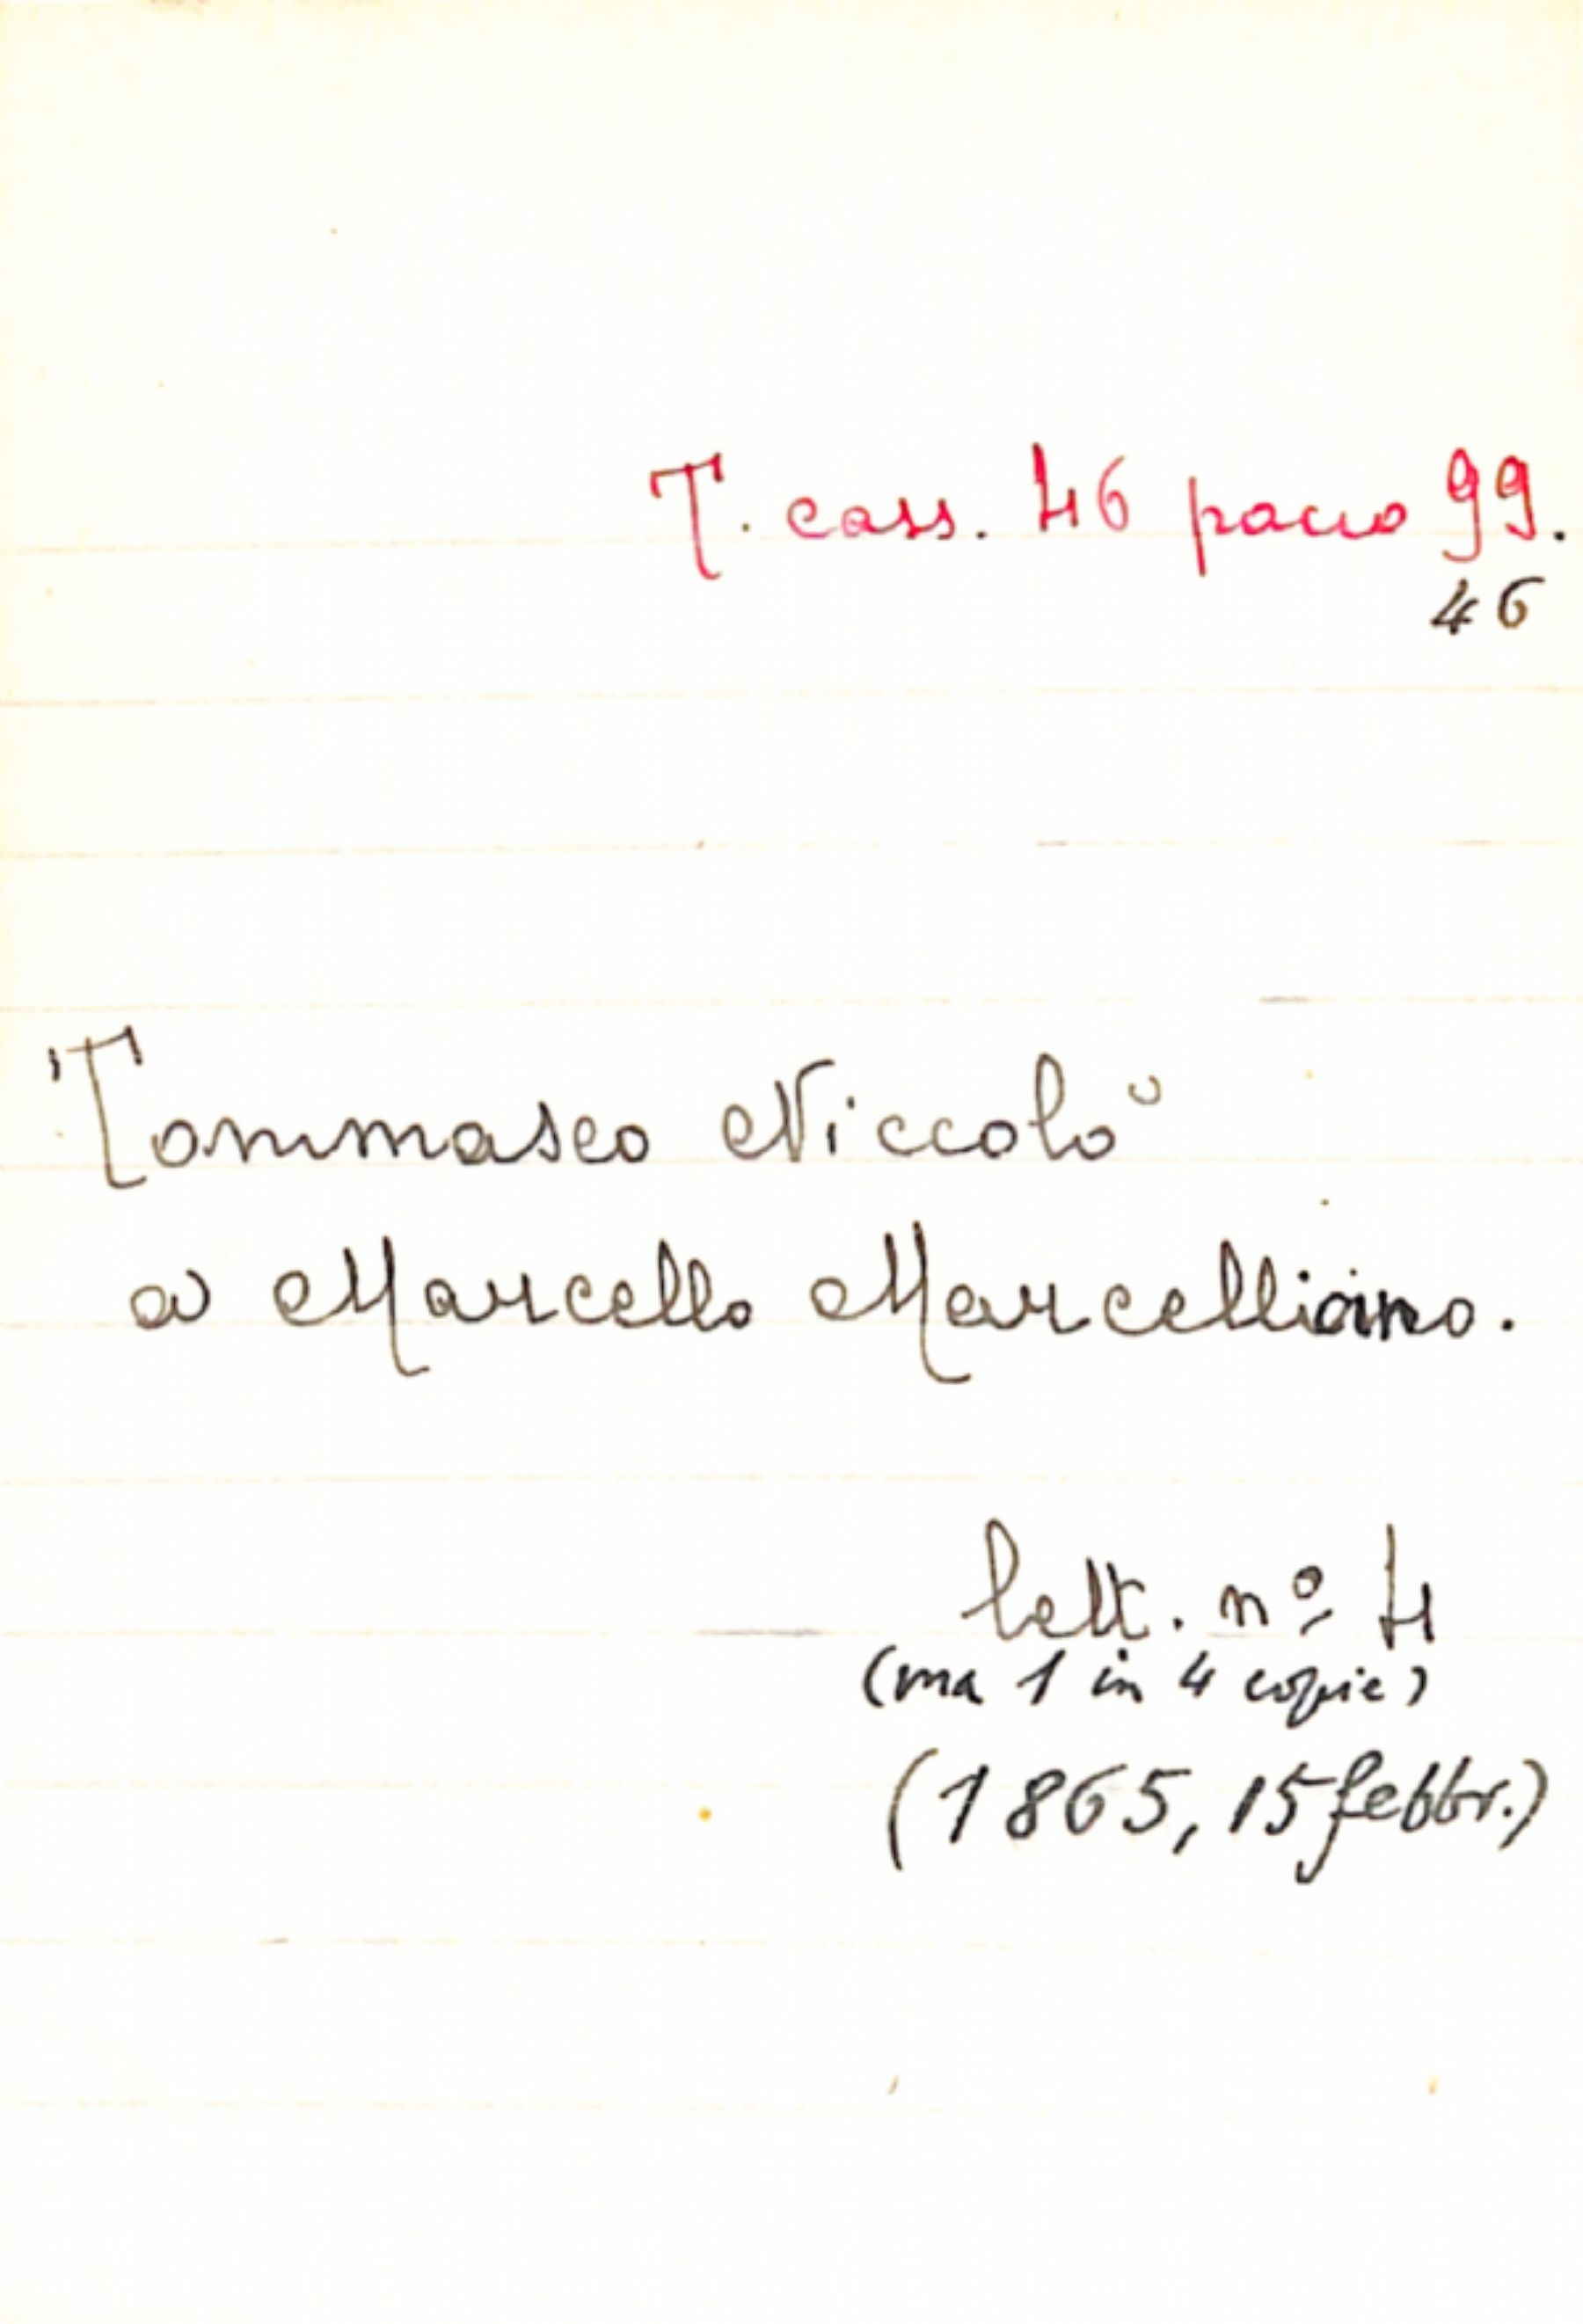 T. cass. 46 pacco 99.
46
Tommaseo Niccolò
a Marcello Marcelliano.
lett. nº 4
(ma 1 in 4 copie)
(1865, 15 febbr.)